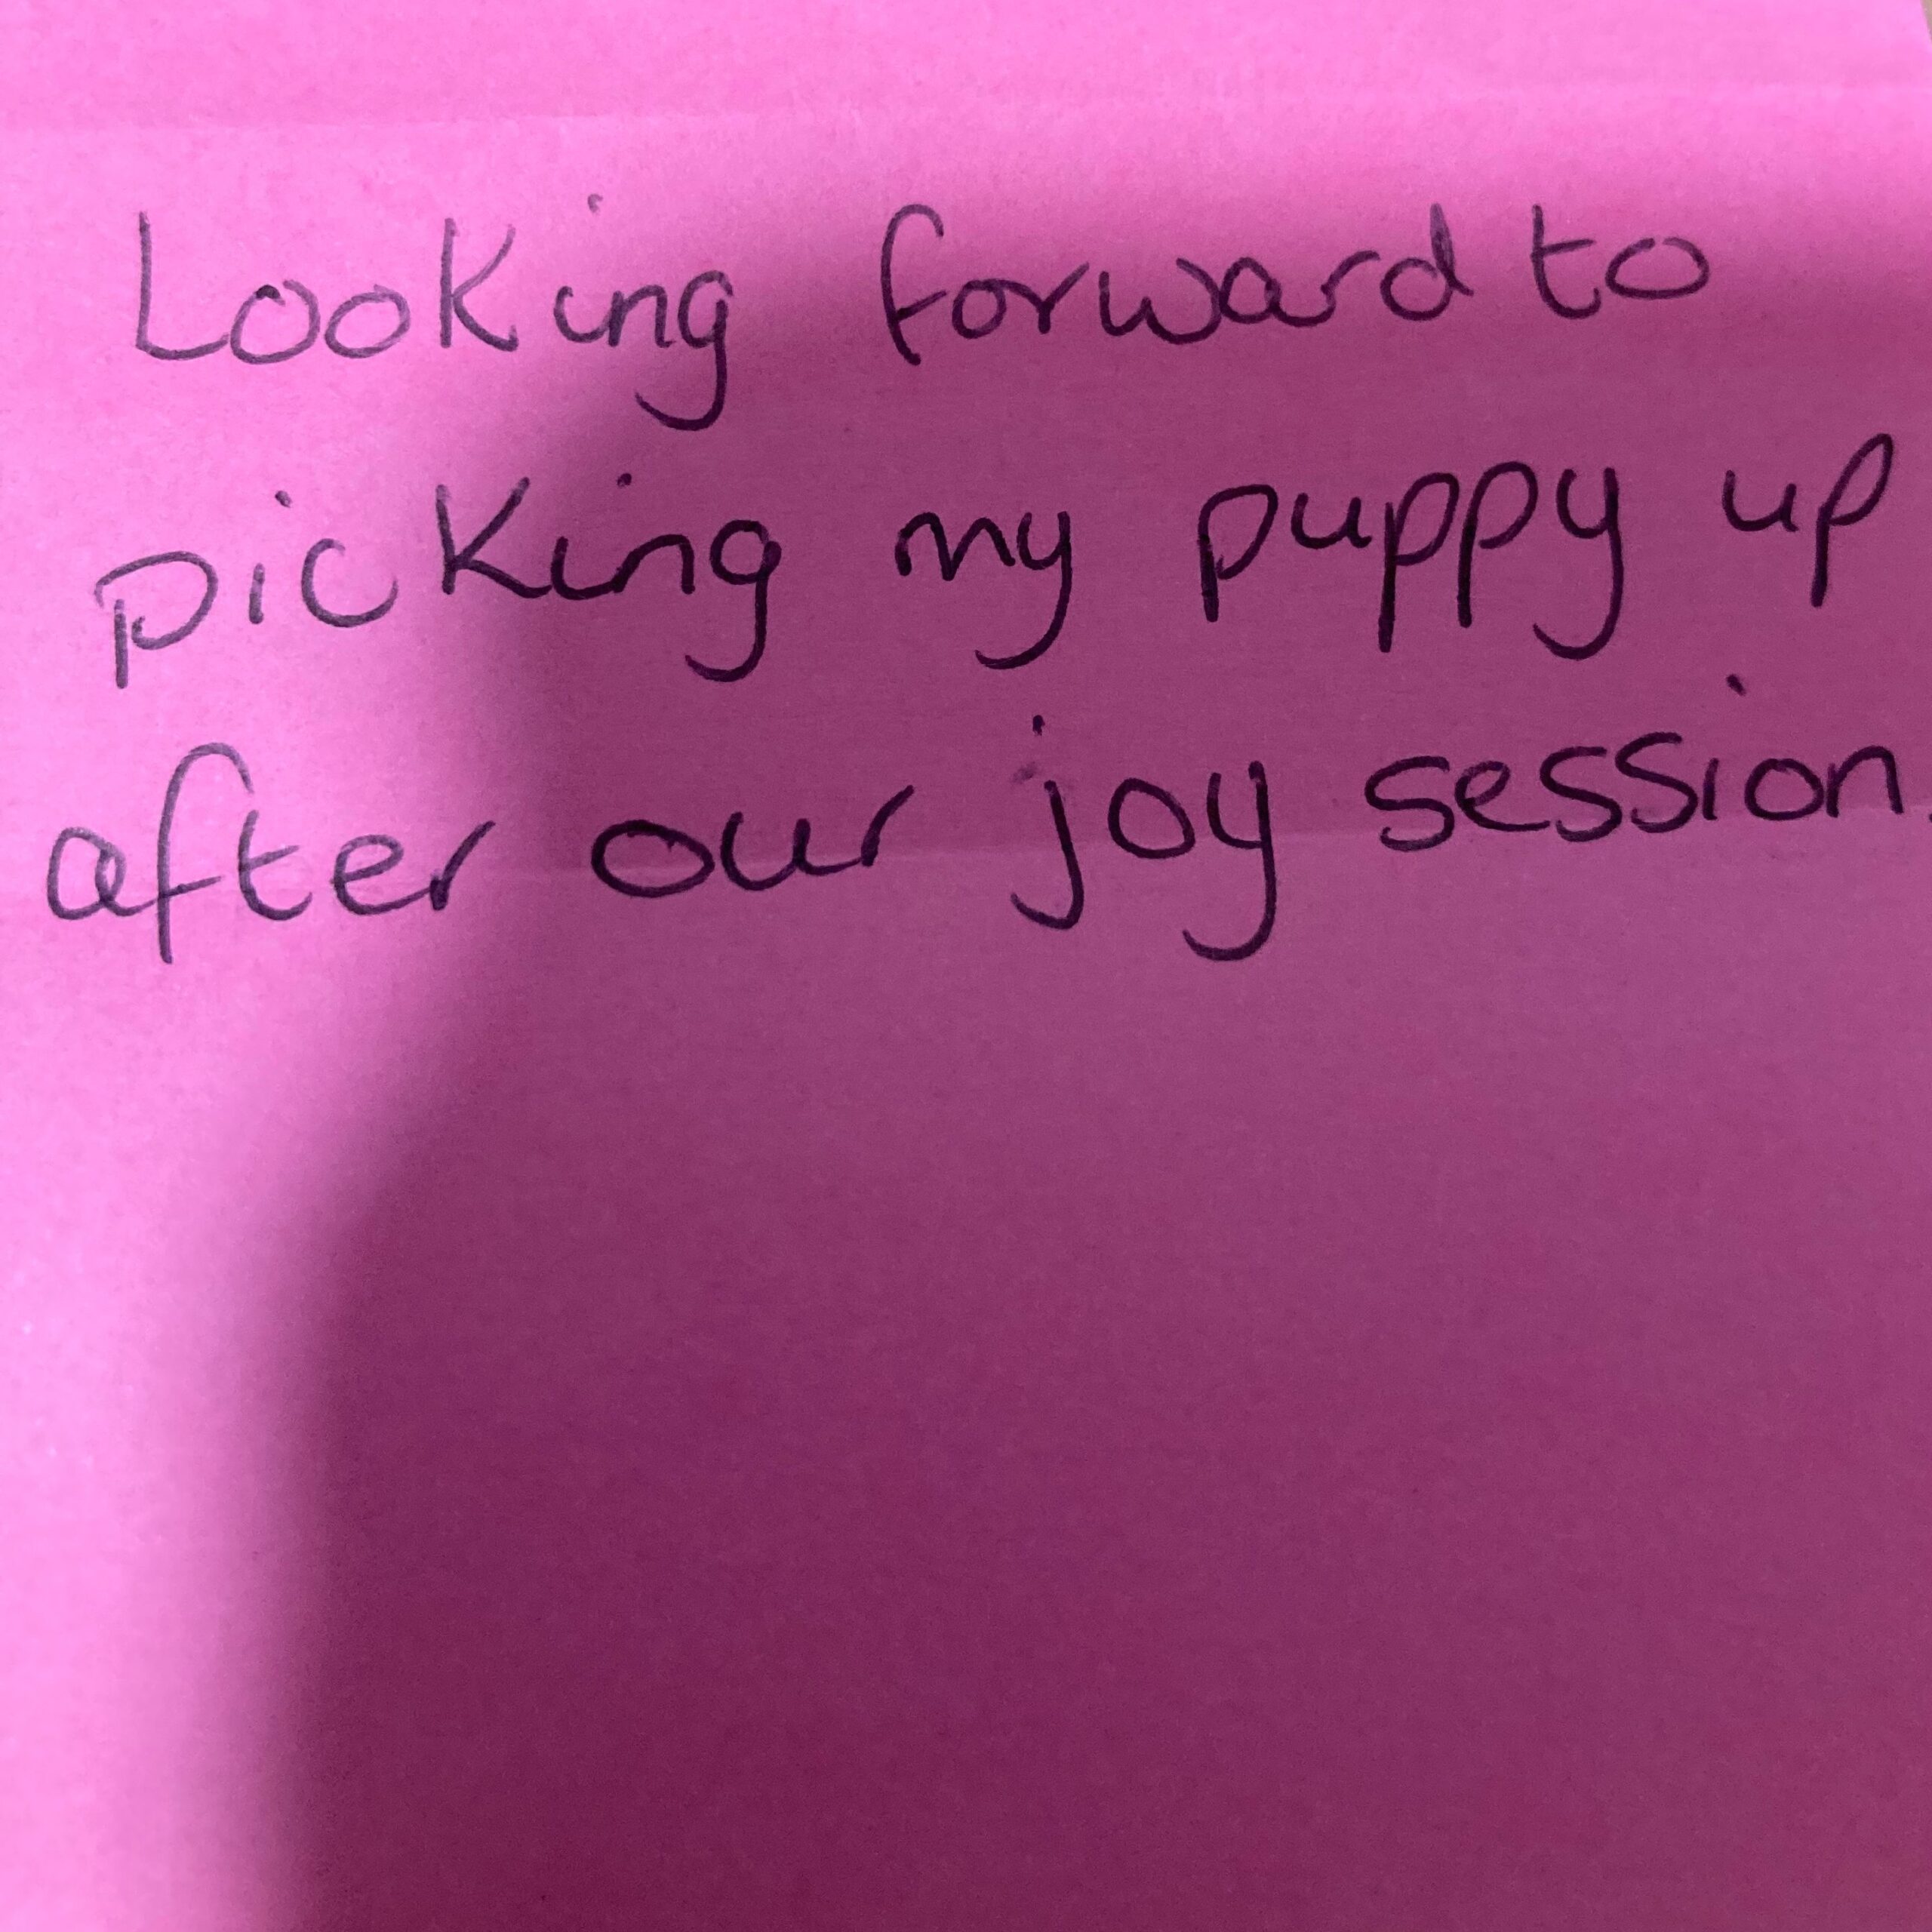 Looking forward to
picking my puppy up
after our joy session.